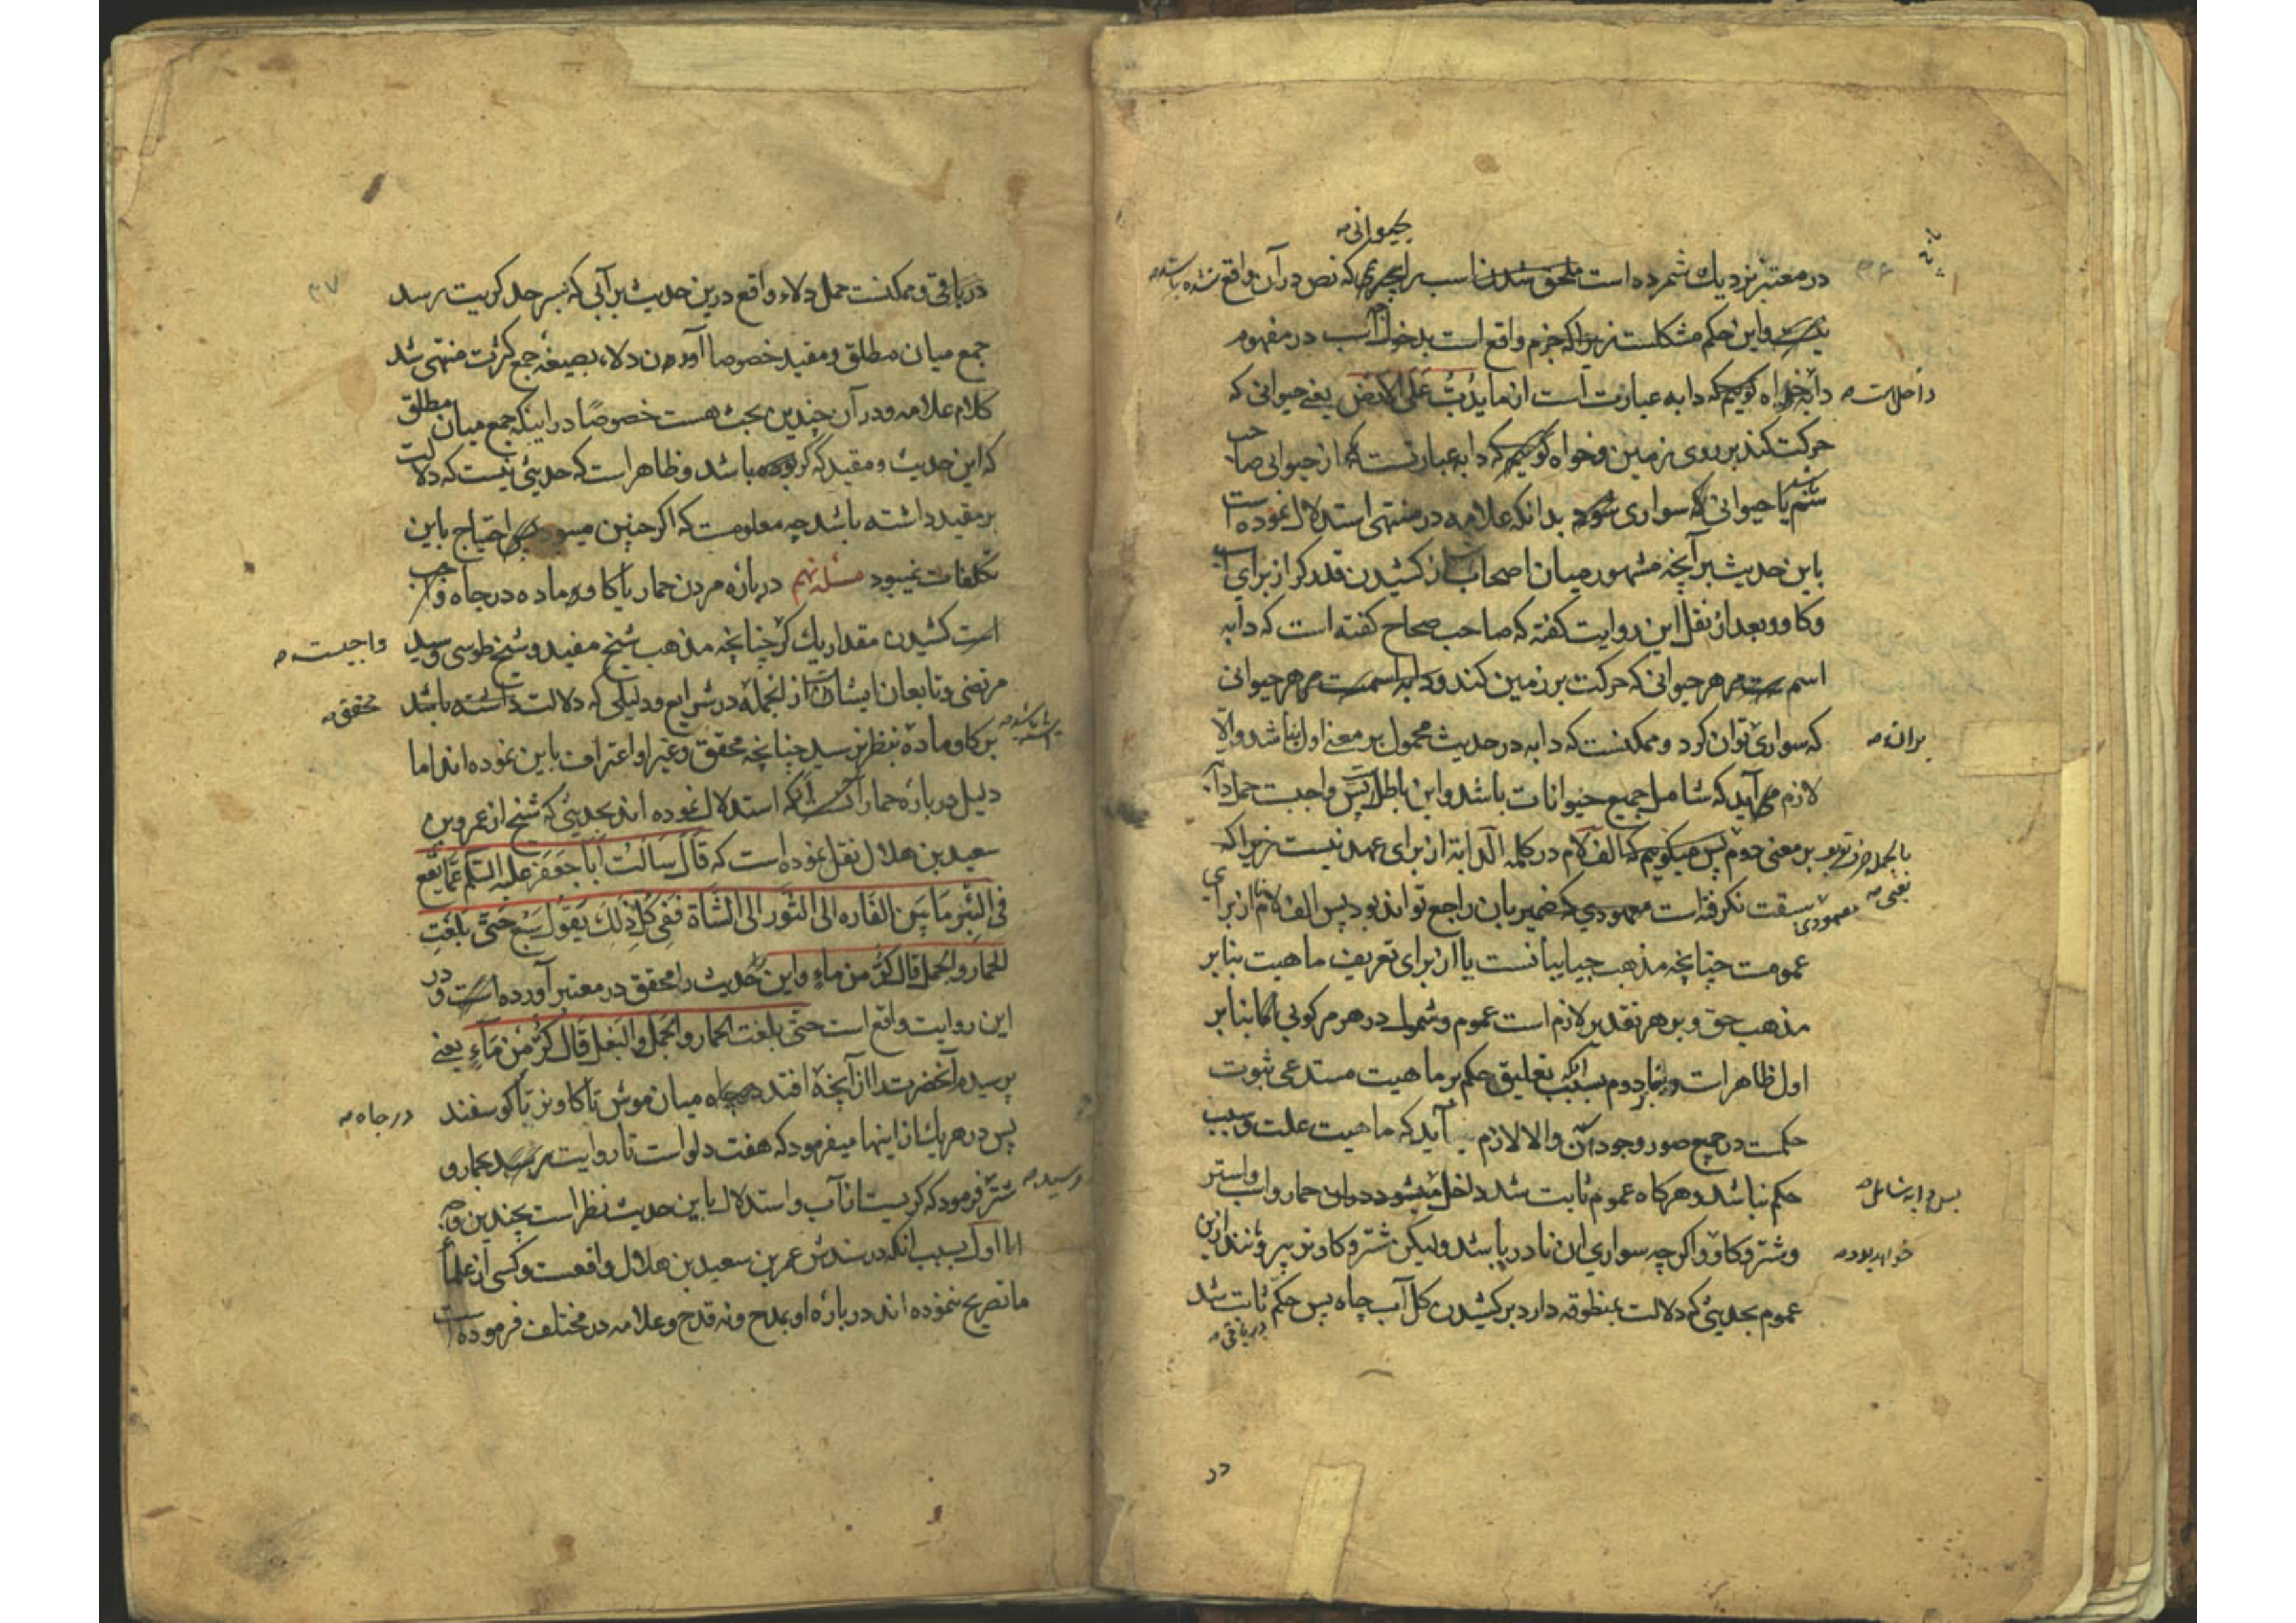 بحیوانی صح
در معتبر نزدیك شمرده است ملحق شدن اسب را بچیزی که نص در آن واقع نشده باشد صح
نیست و این حکم مشکلست زیرا که جزم واقع است بدخول اسب در مفهوم
دابه خواه گوییم که دابه عبارت است از ما یدب علی الارض یعنی حیوانی که
داخلست صح
حرکت کند بر روی زمین و خواه گوییم که دابه عبارتست از حیوانی صاحب
سم یا حیوانی که سواری شود بدانکه علامه در منتهی استدلال نموده است
باین حدیث بر آنچه مشهور میان اصحابست از کشیدن قدر کر از برای اسب
و کاو و بعد از نقل این روایت کفته که صاحب صحاح کفته است که دابه
اسم است مر هر حیوانی که حرکت بر زمین کند و دابه اسمست مر هر حیوانی
که سواری توان کرد و ممکنست که دابه در حدیث محمول بر معنی اول نباشد والا
بر آن صح
لازم می آید که شامل جمیع حیوانات باشد و این باطلست پس واجبست حمل دابه
بر معنی دوم پس میکوییم که الف لام در کلمه الدابة از برای عهد نیست زیرا که
سبقت نکرفته است معهودی که ضمیر بآن راجع تواند بود پس الف لام از برای
یعنی صح
معهودی
عمومست چنانچه مذهب جبایانست یا از برای تعریف ماهیت بنا بر
مذهب حق و بر هر تقدیر لازم است عموم و شمول در هر مرکوبی اما بنا بر
اول ظاهر است و بنا بر دوم بسبب آنکه تعلیق حکم بر ماهیت مستدعی ثبوت
حکمست در جمیع صور وجود آن والا لازم آید که ماهیت علت و سبب
حکم نباشد و هرکاه عموم ثابت شد داخل میشود در آن حمار و اسب و استر
پس دابه شامل صح
و شتر و کاو و اکرچه سواری آن نادر باشد ولیکن شتر و کاو نر بیرونند از این
خواهد بود صح
عموم بحدیثی که دلالت بمنطوقه دارد بر کشیدن کل آب چاه پس حکم ثابت شد
در باقی صح
در
در باقی و ممکنست حمل دلاء واقع درین حدیث بر آبی که بسر حد کریت برسد
جمع میان مطلق و مقید خصوصا آوردن دلاء بصیغه جمع کثرت منتهی شد
کلام علامه و در آن چندین بحث هست خصوصًا در اینکه جمع میان مطلق
که این حدیث و مقید که کر بوده باشد و ظاهر است که حدیثی نیست که دلالت
بر مقید داشته باشد چه معلومست که اکر چنین میبود احتیاج باین
تکلفات نمیبود مسئله نهم در باره مردن حمار یا کاو ماده در چاه واجب
است کشیدن مقدار یك کر چنانچه مذهب شیخ مفید و شیخ طوسی و سید
واجبست صح
مرتضی و تابعان ایشانست از انجمله در شرایع و دلیلی که دلالت داشته باشد
محقق صح
بر کاو ماده بنظر نرسید چنانچه محقق و غیر او اعتراف باین نموده اند اما
دلیل در باره حمار آنست که استدلال نموده اند بحدیثی که شیخ از عمرو بن
سعید بن هلال نقل نموده است که قال سالت ابا جعفر علیه السلم عما یقع
فی البئر ما بین الفاره الی الثور الی الشاة ففی کل ذلك یقول سبع حتی بلغت
الحمار والجمل قال کر من ماء و این حدیث را محقق در معتبر آورده است و در
این روایت واقع است حتی بلغت الحمار والجمل والبغل قال کر من ماء یعنی
پرسیدم آنحضرت را از آنچه افتد در چاه میان موش تا کاو نر تا کوسفند
در چاه صح
پس در هر یك از اینها میفرمود که هفت دلو است تا روایت برسید بحمار و
رسید صح
شتر فرمود که کریست از آب و استدلال باین حدیث نظر است بچندین وجه
اما اول بسبب آنکه در سندش عمر بن سعید بن هلال واقعست و کسی از علماء
ما تصریح ننموده اند در باره او بمدح و نه قدح و علامه در مختلف فرموده است